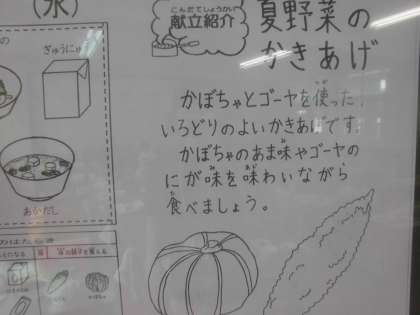 (水)
の
ぎゅうにゅう
あかだし
こんだてしょうかい
献立紹介
夏野菜の
かきあげ
かぼちゃとゴーヤを使った、
いろどりのよいかきあげです。
かぼちゃのあま味やゴーヤの
にが味を味わいながら
食べましょう。
になる
体の調子を整える
かぼちゃ